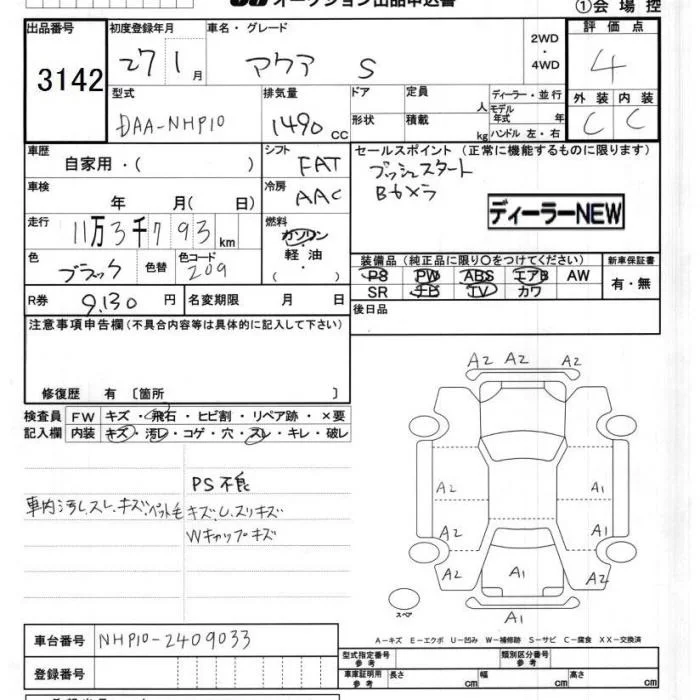 オークション出品申込書
①会場控
出品番号 初度登録年月 車名・グレード 評価点
3142 27 1月 アクア S 2WD・4WD 4
型式 排気量 ドア 定員 人 ディーラー・並行 外装 内装
DAA-NHP10 1490 CC 形状 積載 kg モデル年式 年 ハンドル 左・右 C C
車歴 自家用・( )
シフト FAT
セールスポイント (正常に機能するものに限ります)
プッシュスタート
Bカメラ
ディーラーNEW
車検 年 月( 日)
冷房 AAC
走行 11万3千793km
燃料 ガソリン 軽油 ( ・ )
色 ブラック 色替 色コード 209
装備品 (純正品に限り○をつけてください) 新車保証書
PS PW ABS エアB AW 有・無
SR TV カワ
R券 9,130 円 名変期限 月 日
後日品
注意事項申告欄 (不具合内容等は具体的に記入して下さい)
修復歴 有 〔箇所 〕
検査員 FW キズ・飛石・ヒビ割・リペア跡・×要
記入欄 内装 キズ・汚レ・コゲ・穴・スレ・キレ・破レ
PS不良
車内汚レスレ、キズ、ペット毛 キズ、U、スリキズ
Wキャップキズ
A2 A2 A2
A2 A1
A2 A1
A2 A1 A2
A1
スペア
A-キズ E-エクボ U-凹み W-補修跡 S-サビ C-腐食 XX-交換済
車台番号 NHP10-2409033
型式指定番号 参考 類別区分番号 参考
登録番号
車庫証明用 参考 長さ cm 幅 cm 高さ cm